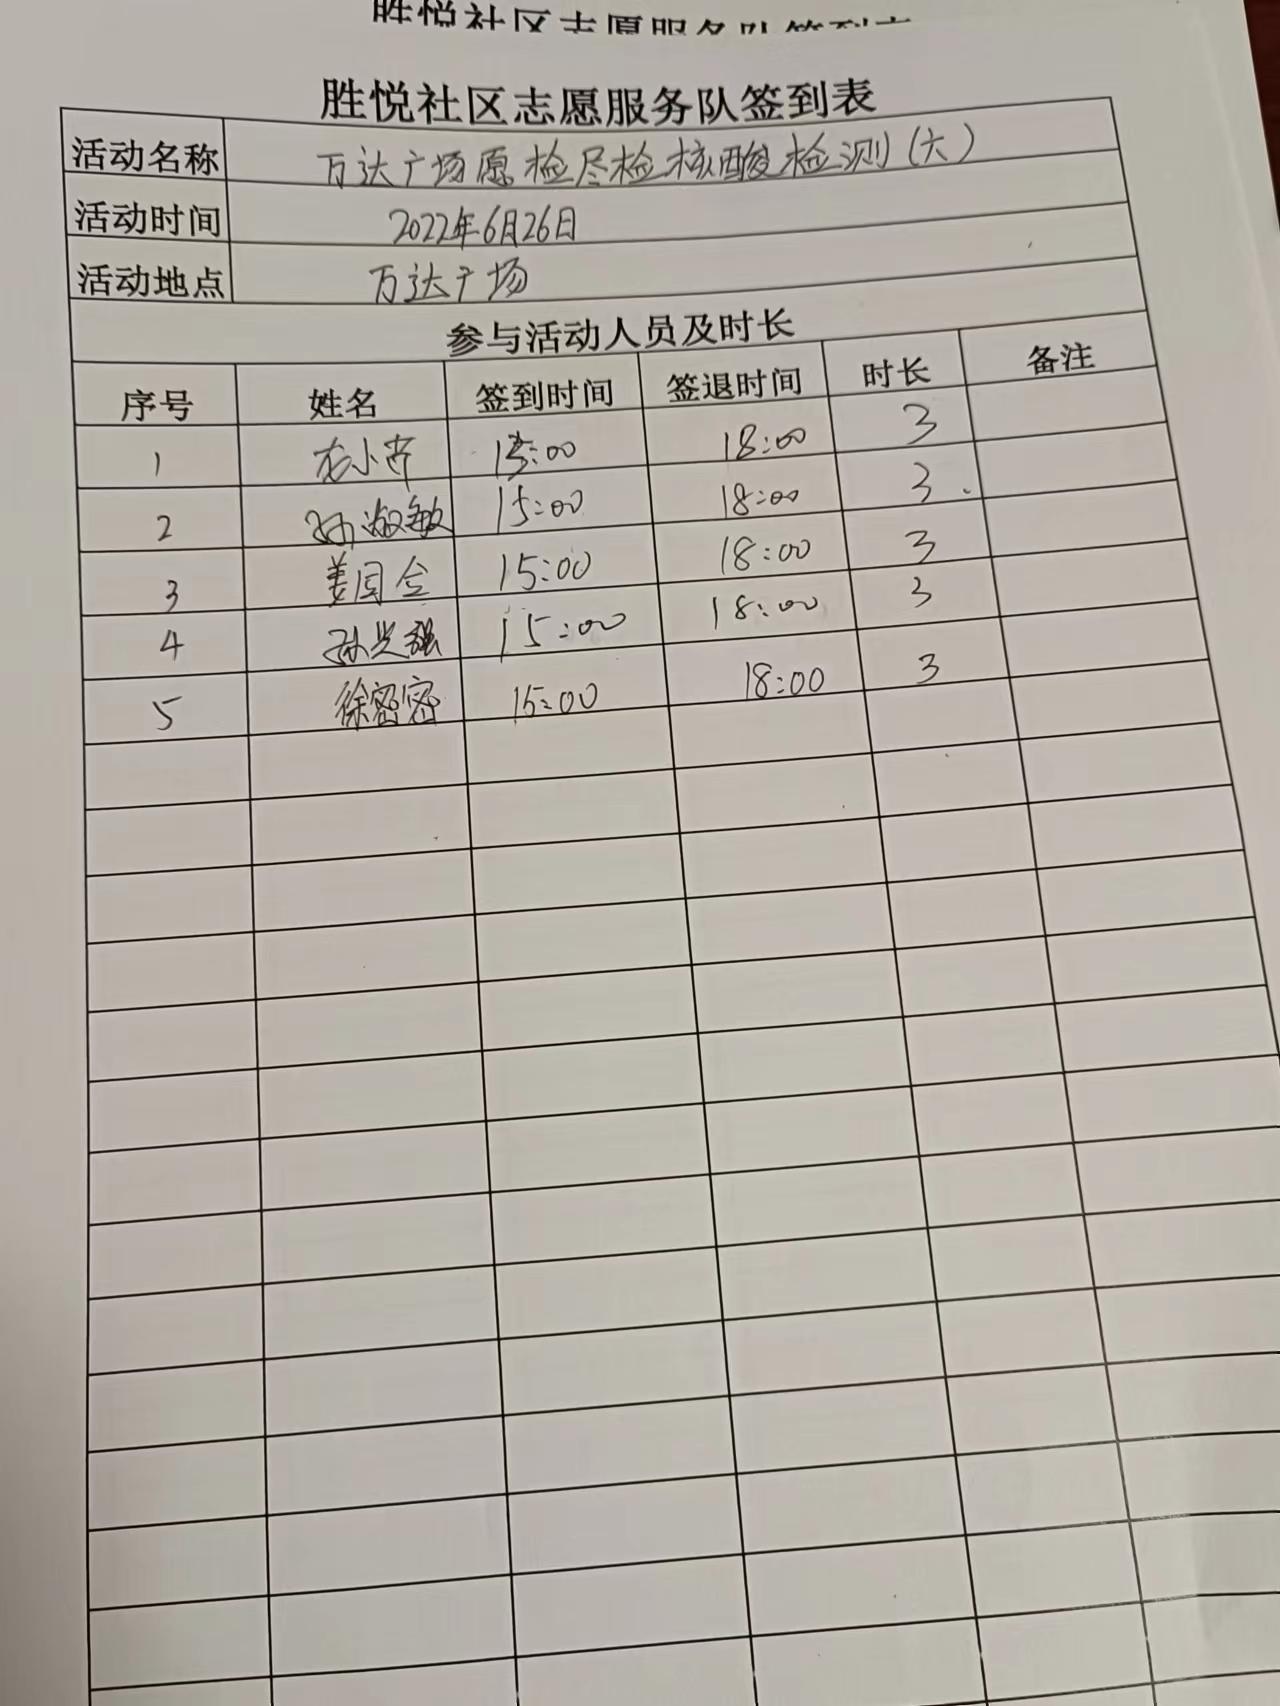 胜悦社区志愿服务队签到表
活动名称 万达广场愿检尽检核酸检测(六)
活动时间 2022年6月26日
活动地点 万达广场
参与活动人员及时长
序号 姓名 签到时间 签退时间 时长 备注
1 15:00 18:00 3
2 孙淑敏 15:00 18:00 3
3 姜同金 15:00 18:00 3
4 15:00 18:00 3
5 徐密密 15:00 18:00 3